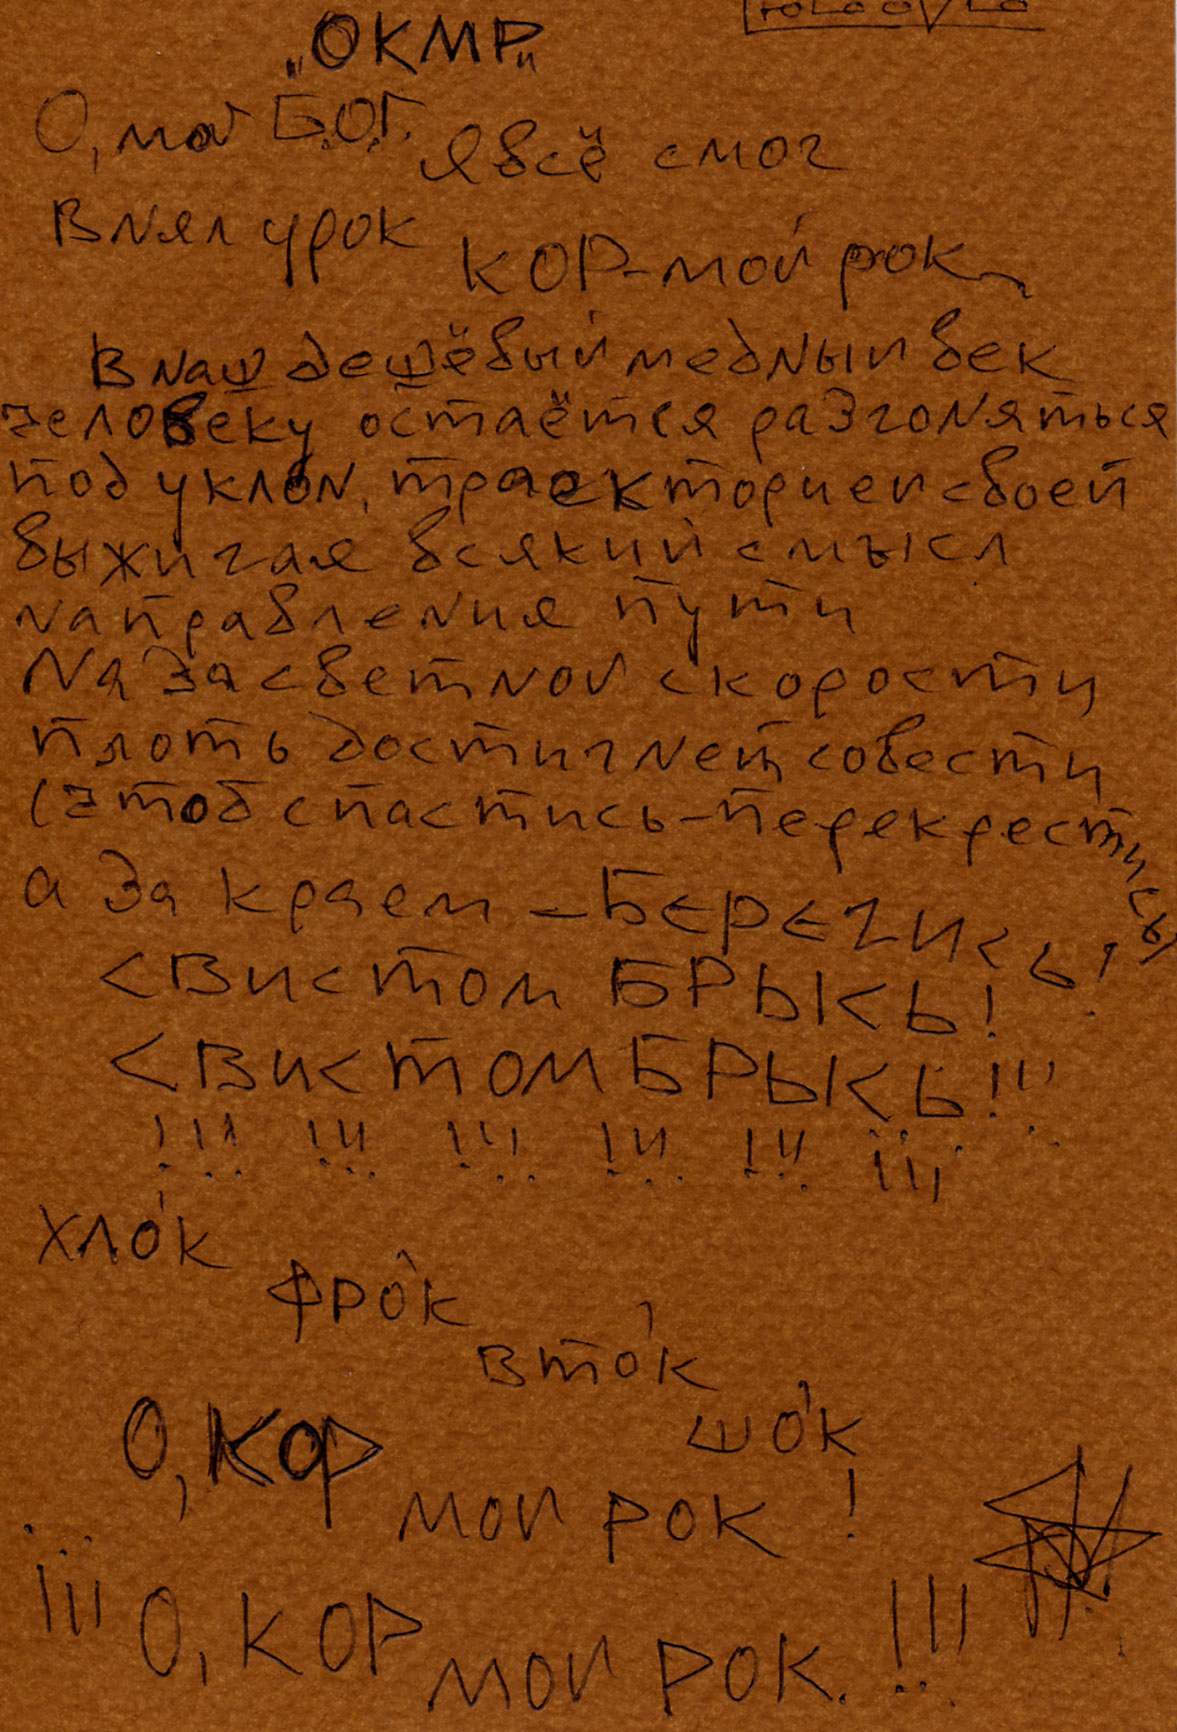 „ОКМР“
О, мой Б.О.Г.
Я всё смог
Внял урок
КОР-мой рок
В наш дешёвый медный век
человеку остаётся разгоняться
под уклон, траекторией своей
выжигая всякий смысл
направления пути
На засветной скорости
плоть достигнет совести
(чтоб спастись-перекрестись)
а за краем - БЕРЕГИСЬ!
СВИСТОМ БРЫКСЬ!
СВИСТОМ БРЫКСЬ!!!
!!! !!! !!! !!! !!! ¡¡¡
ХЛО́К
ФРО́К
ВТО́К
ШО́К
О, КОР
мой рок!
¡¡¡ О, КОР
мой рок. !!!